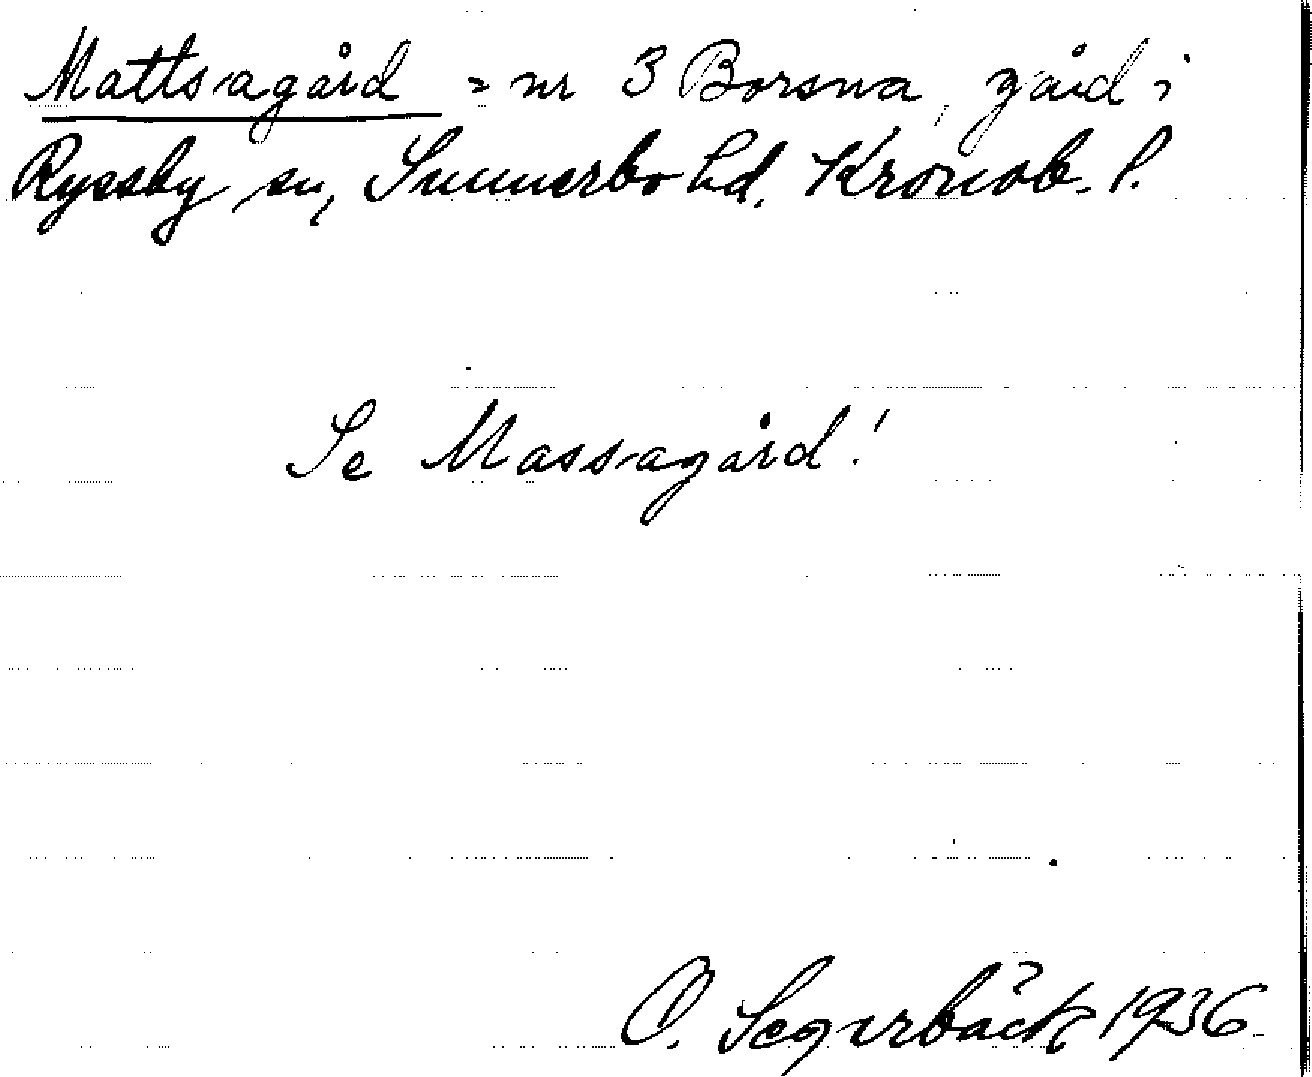 Mattsagård = nr 3 Borsna, gård i
Ryssby sn, Sunnerbo hd. Kronob. l.
Se Massagård!
O. Segerbäck 1936